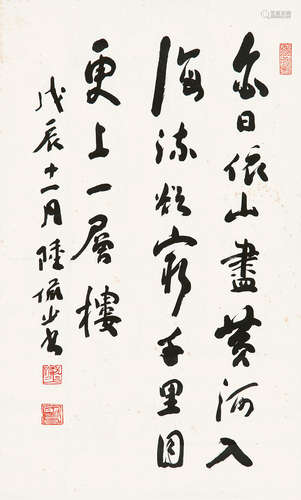 白日依山盡黄河入
海流欲窮千里目
更上一層樓
戊辰十一月陸儼少書